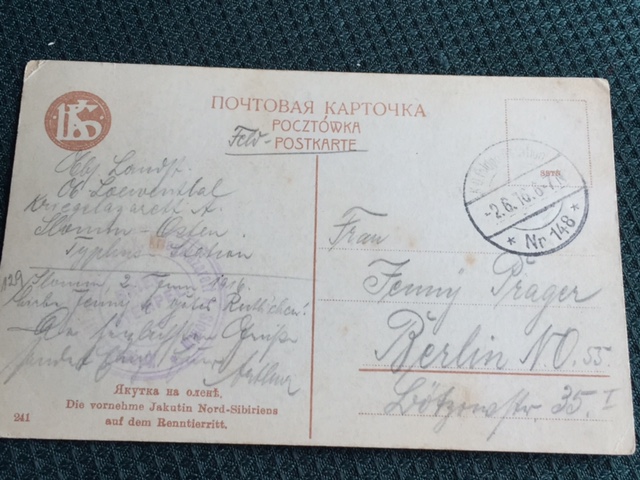 ПОЧТОВАЯ КАРТОЧКА
POCZTÓWKA
Feld-POSTKARTE
Abs. Landst.
Loewenthal
Kriegslazarett A.
Slonim-Osten
Typhus-Station
129 Slonim, 2. Juni 1916.
Liebe Jenny & gutes Ruthchen!
Die herzlichsten Grüße
sendet Euch Euer
Arthur
Якутка на оленѣ.
Die vornehme Jakutin Nord-Sibiriens
auf dem Renntierritt.
241
-2.6.16. 6-7
* Nr 148 *
Frau
Jenny Prager
Berlin N.O. 55
Bötzowstr. 35. I